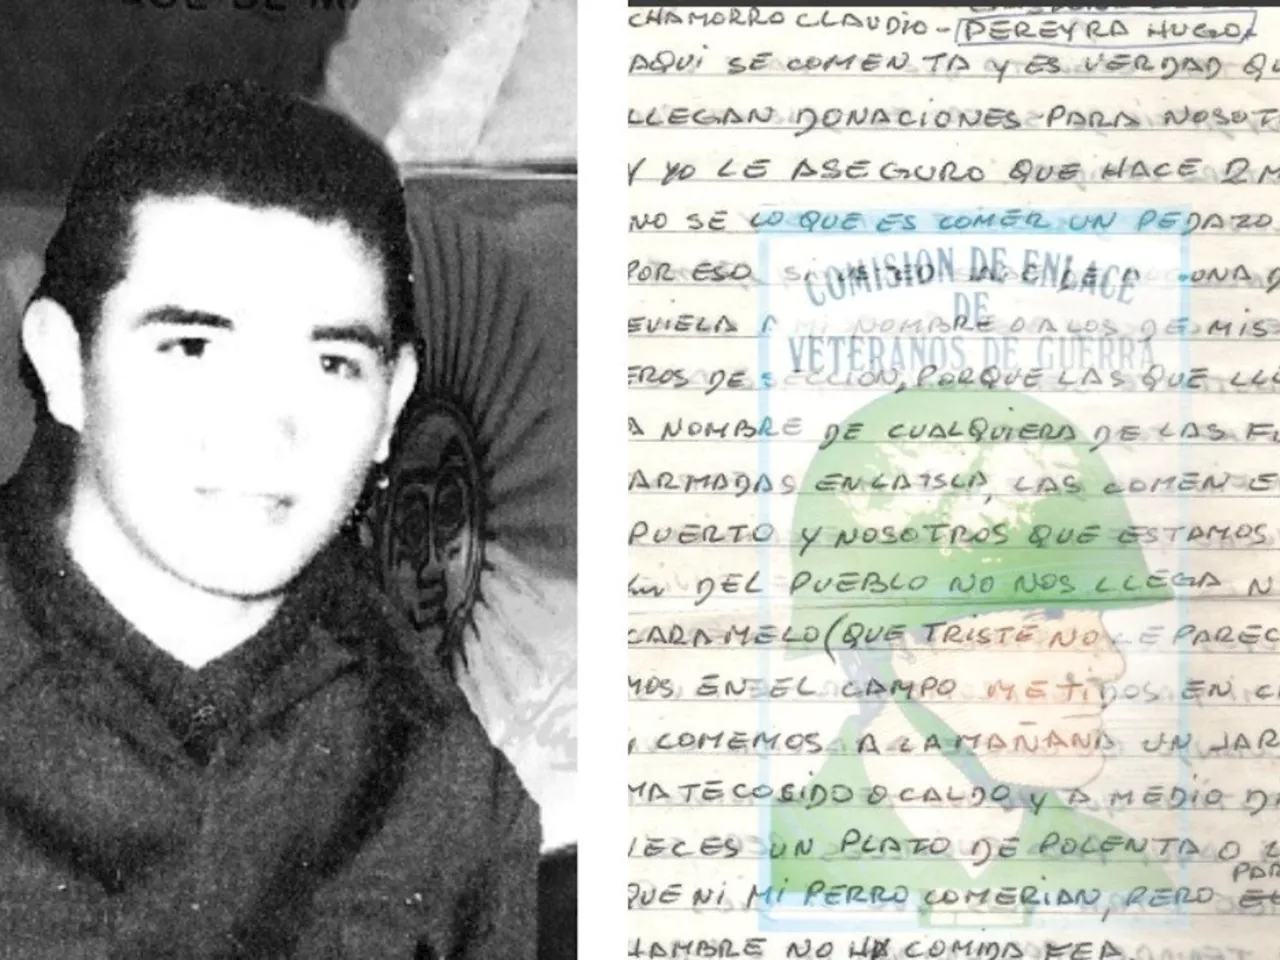 QUE SE NO
CHAMORRO CLAUDIO - PEREYRA HUGO
AQUI SE COMENTA Y ES VERDAD QU
LLEGAN DONACIONES PARA NOSOT
Y YO LE ASEGURO QUE HACE 2 M
NO SE LO QUE ES COMER UN PEDAZO
POR ESO SI
COMISION DE ENLACE
DE
VETERANOS DE GUERRA
EVIELA A MI NOMBRE O A LOS DE MIS
EROS DE SECCION, PORQUE LAS QUE LLE
A NOMBRE DE CUALQUIERA DE LAS F
ARMADAS EN LA ISLA, LAS COMEN E
PUERTO Y NOSOTROS QUE ESTAMOS
DEL PUEBLO NO NOS LLEGA N
CARAMELO (QUE TRISTE NO LE PAREC
MOS EN EL CAMPO METIDOS EN C
Y COMEMOS A LA MAÑANA UN JAR
MATECOSIDO O CALDO Y A MEDIO D
VECES UN PLATO DE POLENTA O
PAR
QUE NI MI PERRO COMERIAN, PERO
HAMBRE NO HA COMIDA FEA.